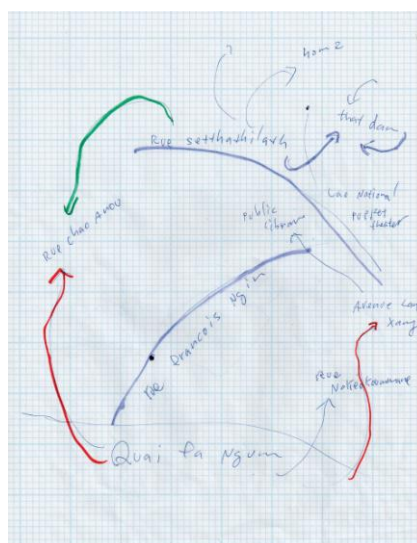 hom 2
that dam
Rue Setthathilath
Lao National
Puppet
theater
public
library
Rue Chao Anou
Avenue Lan
Xang
Rue Francois Ngin
Rue
Nokeokoummane
Quai Fa Ngum